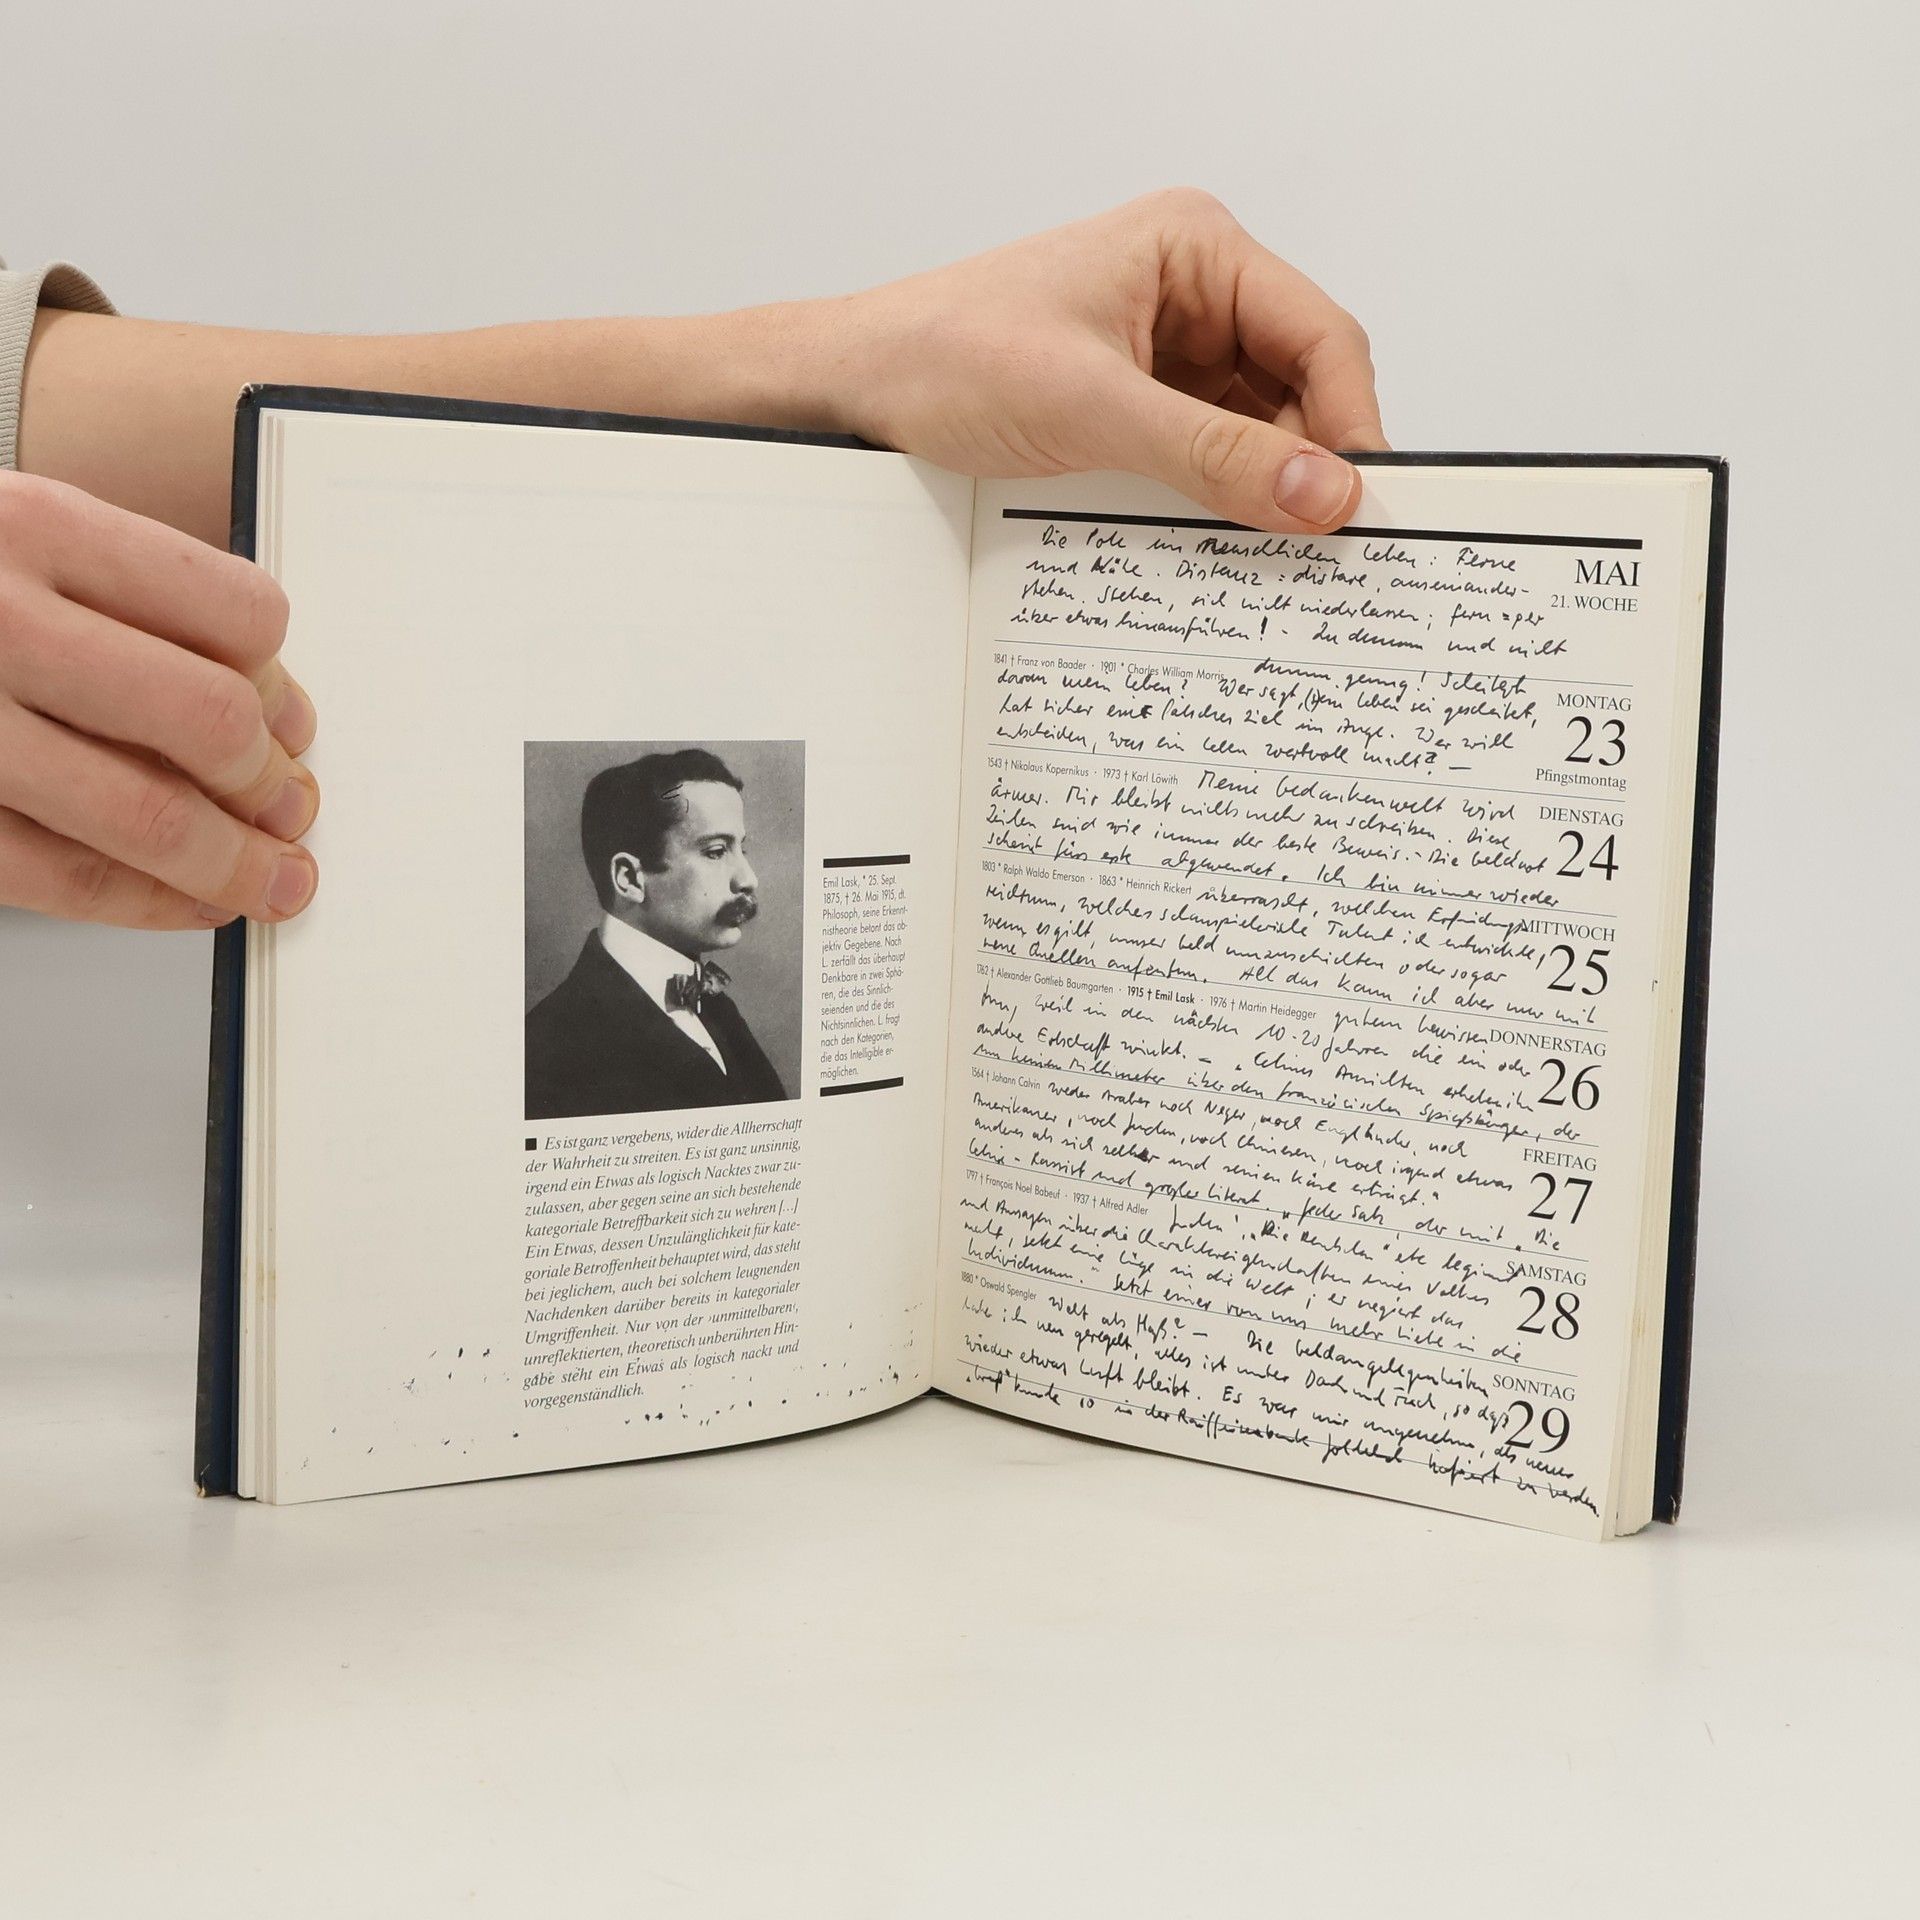 Emil Lask, * 25. Sept.
1875, † 26. Mai 1915, dt.
Philosoph, seine Erkennt-
nistheorie betont das ob-
jektiv Gegebene. Nach
L. zerfällt das überhaupt
Denkbare in zwei Sphä-
ren, die des Sinnlich-
seienden und die des
Nichtsinnlichen. L. fragt
nach den Kategorien,
die das Intelligible er-
möglichen.
■ Es ist ganz vergebens, wider die Allherrschaft
der Wahrheit zu streiten. Es ist ganz unsinnig,
irgend ein Etwas als logisch Nacktes zwar zu-
zulassen, aber gegen seine an sich bestehende
kategoriale Betreffbarkeit sich zu wehren [...]
Ein Etwas, dessen Unzulänglichkeit für kate-
goriale Betroffenheit behauptet wird, das steht
bei jeglichem, auch bei solchem leugnenden
Nachdenken darüber bereits in kategorialer
Umgriffenheit. Nur von der ›unmittelbaren‹,
unreflektierten, theoretisch unberührten Hin-
gabe steht ein Etwas als logisch nackt und
vorgegenständlich.
MAI
21. WOCHE
Die Pole im menschlichen Leben: Ferne
und Nähe. Distanz = distare, auseinander-
stehen. Stehen, sich nicht niederlassen; fern = per
über etwas hinausführen! - Zu dumm und nicht
1841 † Franz von Baader · 1901 * Charles William Morris
dumm genug! Scheitert
MONTAG
23
Pfingstmontag
daran mein Leben? Wer sagt, sein Leben sei gescheitert,
hat sicher ein falsches Ziel im Auge. Wer will
entscheiden, was ein Leben wertvoll macht? —
1543 † Nikolaus Kopernikus · 1973 † Karl Löwith
Meine Gedankenwelt wird
DIENSTAG
24
ärmer. Mir bleibt nichts mehr zu schreiben. Diese
Zeilen sind wie immer der beste Beweis. - Die Geldnot
scheint fürs erste abgewendet. Ich bin immer wieder
1803 * Ralph Waldo Emerson · 1863 * Heinrich Rickert
überrascht, welchen Erfindungs-
MITTWOCH
25
reichtum, welches schauspielerische Talent ich entwickle,
wenn es gilt, unser Geld umzuschichten oder sogar
neue Quellen aufzutun. All das kann ich aber nur mit
1762 † Alexander Gottlieb Baumgarten · 1915 † Emil Lask · 1976 † Martin Heidegger
gutem Gewissen
DONNERSTAG
26
tun, weil in den nächsten 10-20 Jahren die ein oder
andere Erbschaft winkt. - „Célines Ansichten erheben ihn
um keinen Millimeter über den französischen Spießbürger, der
1564 † Johann Calvin
weder Araber noch Neger, noch Engländer, noch
FREITAG
27
Amerikaner, noch Juden, noch Chinesen, noch irgend etwas
anderes als sich selber und seinen Käse erträgt."
Céline - Rassist und großer Literat. „Jeder Satz, der mit „Die
1797 † François Noel Babeuf · 1937 † Alfred Adler
Juden", „Die Deutschen" etc beginnt
SAMSTAG
28
und Aussagen über die Charaktereigenschaften eines Volkes
macht, setzt eine Lüge in die Welt; er negiert das
Individuum." Setzt einer von uns mehr Liebe in die
1880 * Oswald Spengler
Welt als Haß? — Die Geldangelegenheiten
SONNTAG
29
habe ich neu geregelt, alles ist unter Dach und Fach, so daß
wieder etwas Luft bleibt. Es war mir unangenehm, als neuer
kunde in der Raiffeisenbank hofiert zu werden.